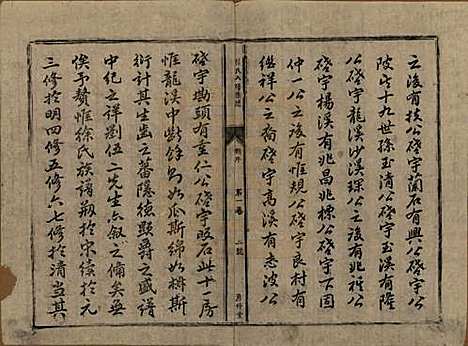 之後有技公啓宇蘭石有興公啓宇公
陂至十九世孫玉清公啓宇玉溪有隆
公啓宇龍溪沙溪琛公之後有兆榮公
啓宇楊溪有兆昌兆標公啓宇下固
仲一公之後有惟規公啓宇良村有
繼祥公之裔啓宇高溪有志波公
徐氏六修族譜
第一卷
二號
啓宇墈頭有重仁公啓宇暇石此十一房
惟龍溪中斬餘如瓜斯綿如樹斯
衍計其生齒之蕃隱德顯爵之盛譜
中紀之詳劉伍二先生六敘之備矣無
俟予贅惟徐氏族譜剏於宋續於元
三修於明四修五修六七修於清當其